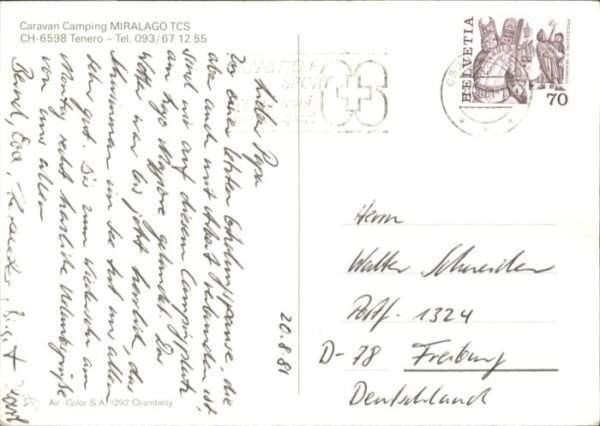 Caravan Camping MIRALAGO TCS
CH-6598 Tenero – Tel. 093/67 12 55
HELVETIA
70
20.8.81
Lieber Papa
Zu einer letzten Erholungspause, die
aber auch mit Arbeit verbunden ist
sind wir auf diesem Campingplatz
am Lago Maggiore gelandet. Das
Wetter war bis jetzt herrlich, das
Schwimmen im See tut uns allen
sehr gut. Bis zum Wiedersehn am
Montag recht herzliche Urlaubsgrüße
von uns allen
Bernd, Eva,
Herrn
Walter Schneider
Postf. 1324
D-78 Freiburg
Deutschland
Air-Color S.A. 1292 Chambésy